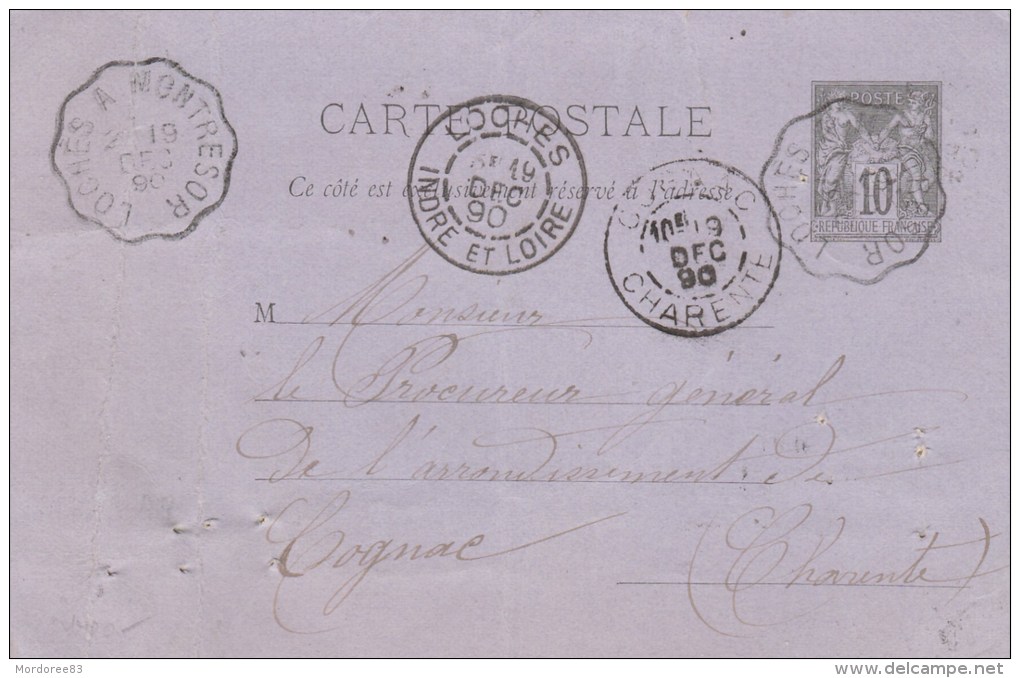 LOCHES A MONTRESOR
19
DEC
90
CARTE POSTALE
LOCHES
19
DEC
90
INDRE ET LOIRE
Ce côté est exclusivement réservé à l'adresse
COGNAC
10E 19
DEC
90
CHARENTE
POSTE
10
REPUBLIQUE FRANÇAISE
LOCHES
SOR
M Monsieur
le Procureur général
De l'arrondissement de
Cognac (Charente)
Mordoree83
delcampe.net